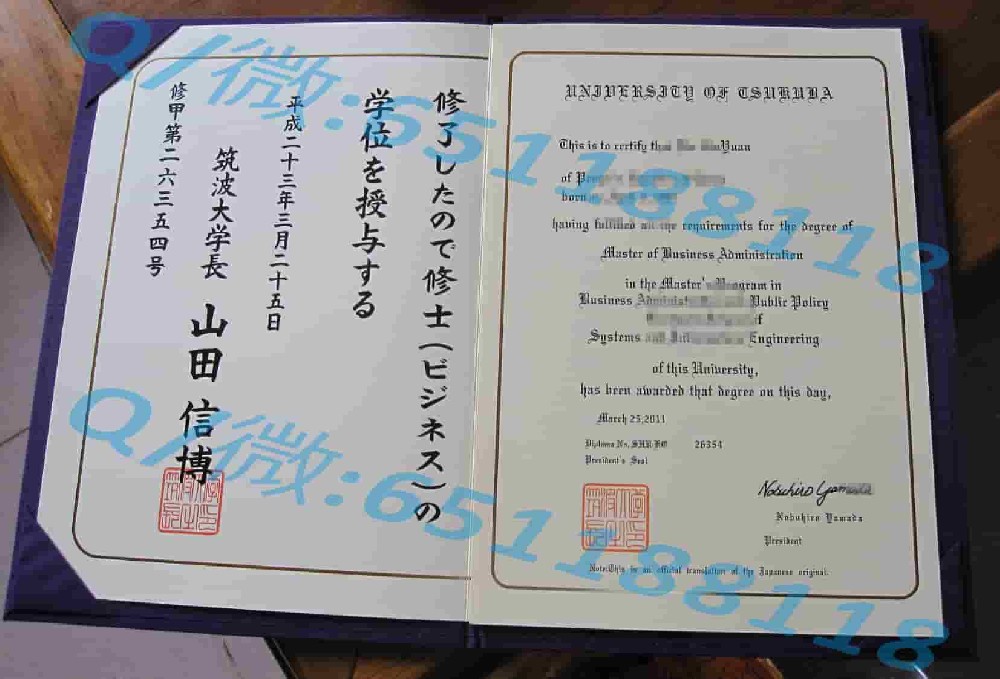 修了したので修士(ビジネス)の
学位を授与する
平成二十三年三月二十五日
筑波大学長 山田信博
修甲第二六三五四号
UNIVERSITY OF TSUKUBA
This is to certify that Yuan
of
born
having fulfilled all the requirements for the degree of
Master of Business Administration
in the Master's Program in
Business Public Policy
Systems and Engineering
of this University,
has been awarded that degree on this day,
March 25,2011
Diploma No. 26354
President's Seal
Nobuhiro Yamada
Nobuhiro Yamada
President
Note:This is an official translation of the Japanese original.
Q/微:651188118
Q/微:651188118